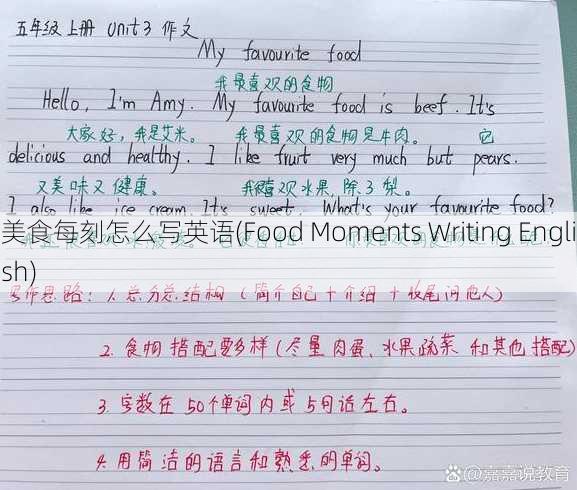 五年级上册 Unit 3 作文
My favourite food
我最喜欢的食物
Hello, I'm Amy. My favourite food is beef. It's
大家好,我是艾米。 我最喜欢的食物是牛肉。 它
delicious and healthy. I like fruit very much but pears.
又美味又健康。 我很喜欢水果,除了梨。
I also like ice cream. It's sweet. What's your favourite food?
美食每刻怎么写英语(Food Moments Writing Engli
sh)
写作思路: 1. 总分总结构 (简介自己+介绍+收尾问他人)
2. 食物搭配要多样(尽量肉蛋、水果蔬菜和其他搭配)
3. 字数在50个单词内或5句话左右。
4. 用简洁的语言和熟悉的单词。
@嘉嘉说教育